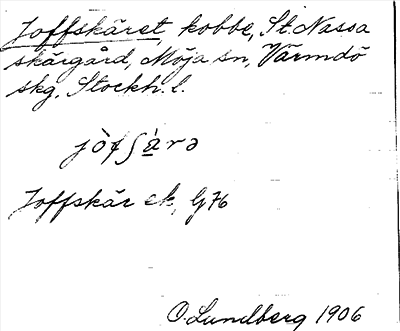 Joffskäret, kobbe, St. Nassa
skärgård, Möja sn, Värmdö
skg, Stockh. l.
Joffskär ek, G 76
O. Lundberg 1906